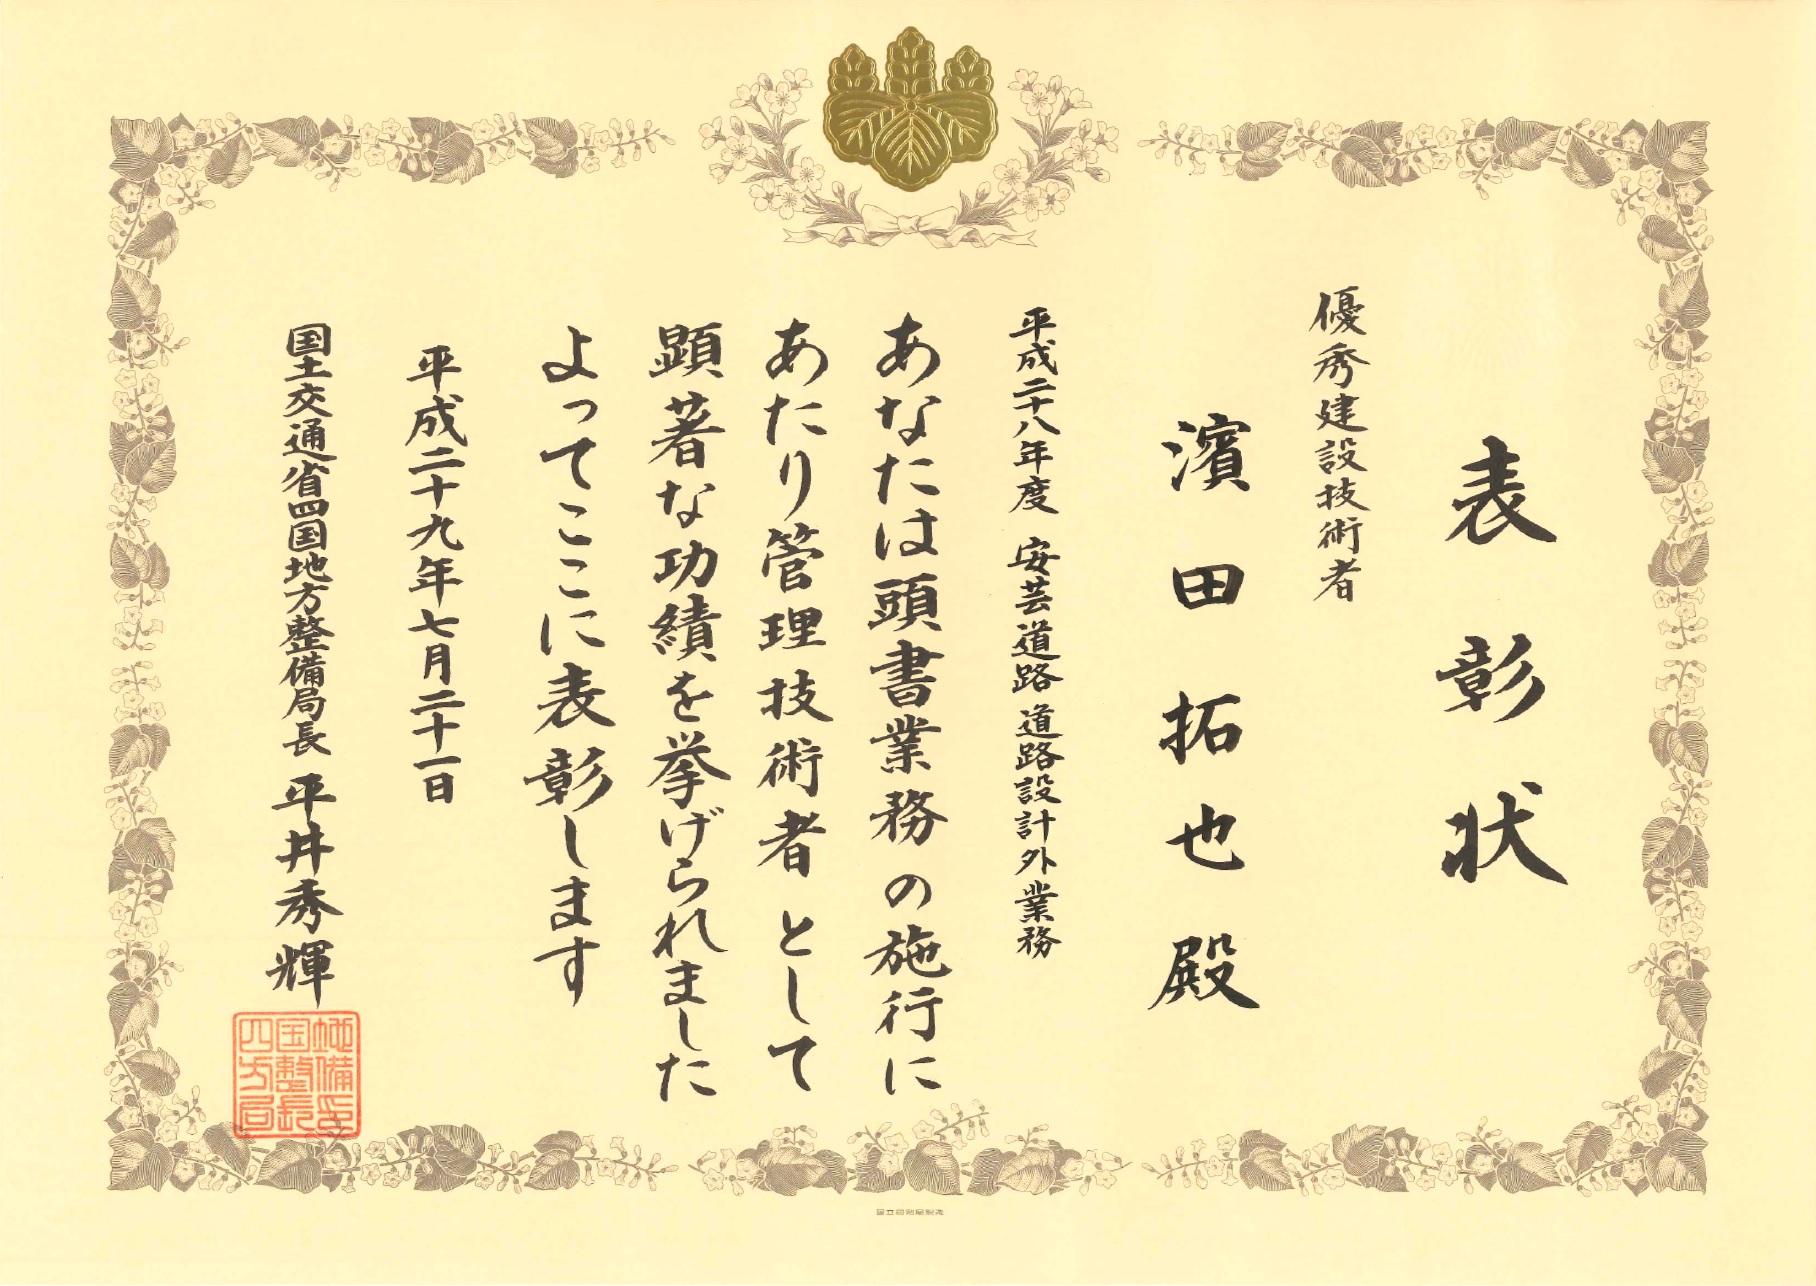 表彰状
優秀建設技術者
濱田拓也殿
平成二十八年度 安芸道路 道路設計外業務
あなたは頭書業務の施行に
あたり管理技術者として
顕著な功績を挙げられました
よってここに表彰します
平成二十九年七月二十一日
国土交通省四国地方整備局長 平井秀輝
地備印
国整長
四方局
国立印刷局製造